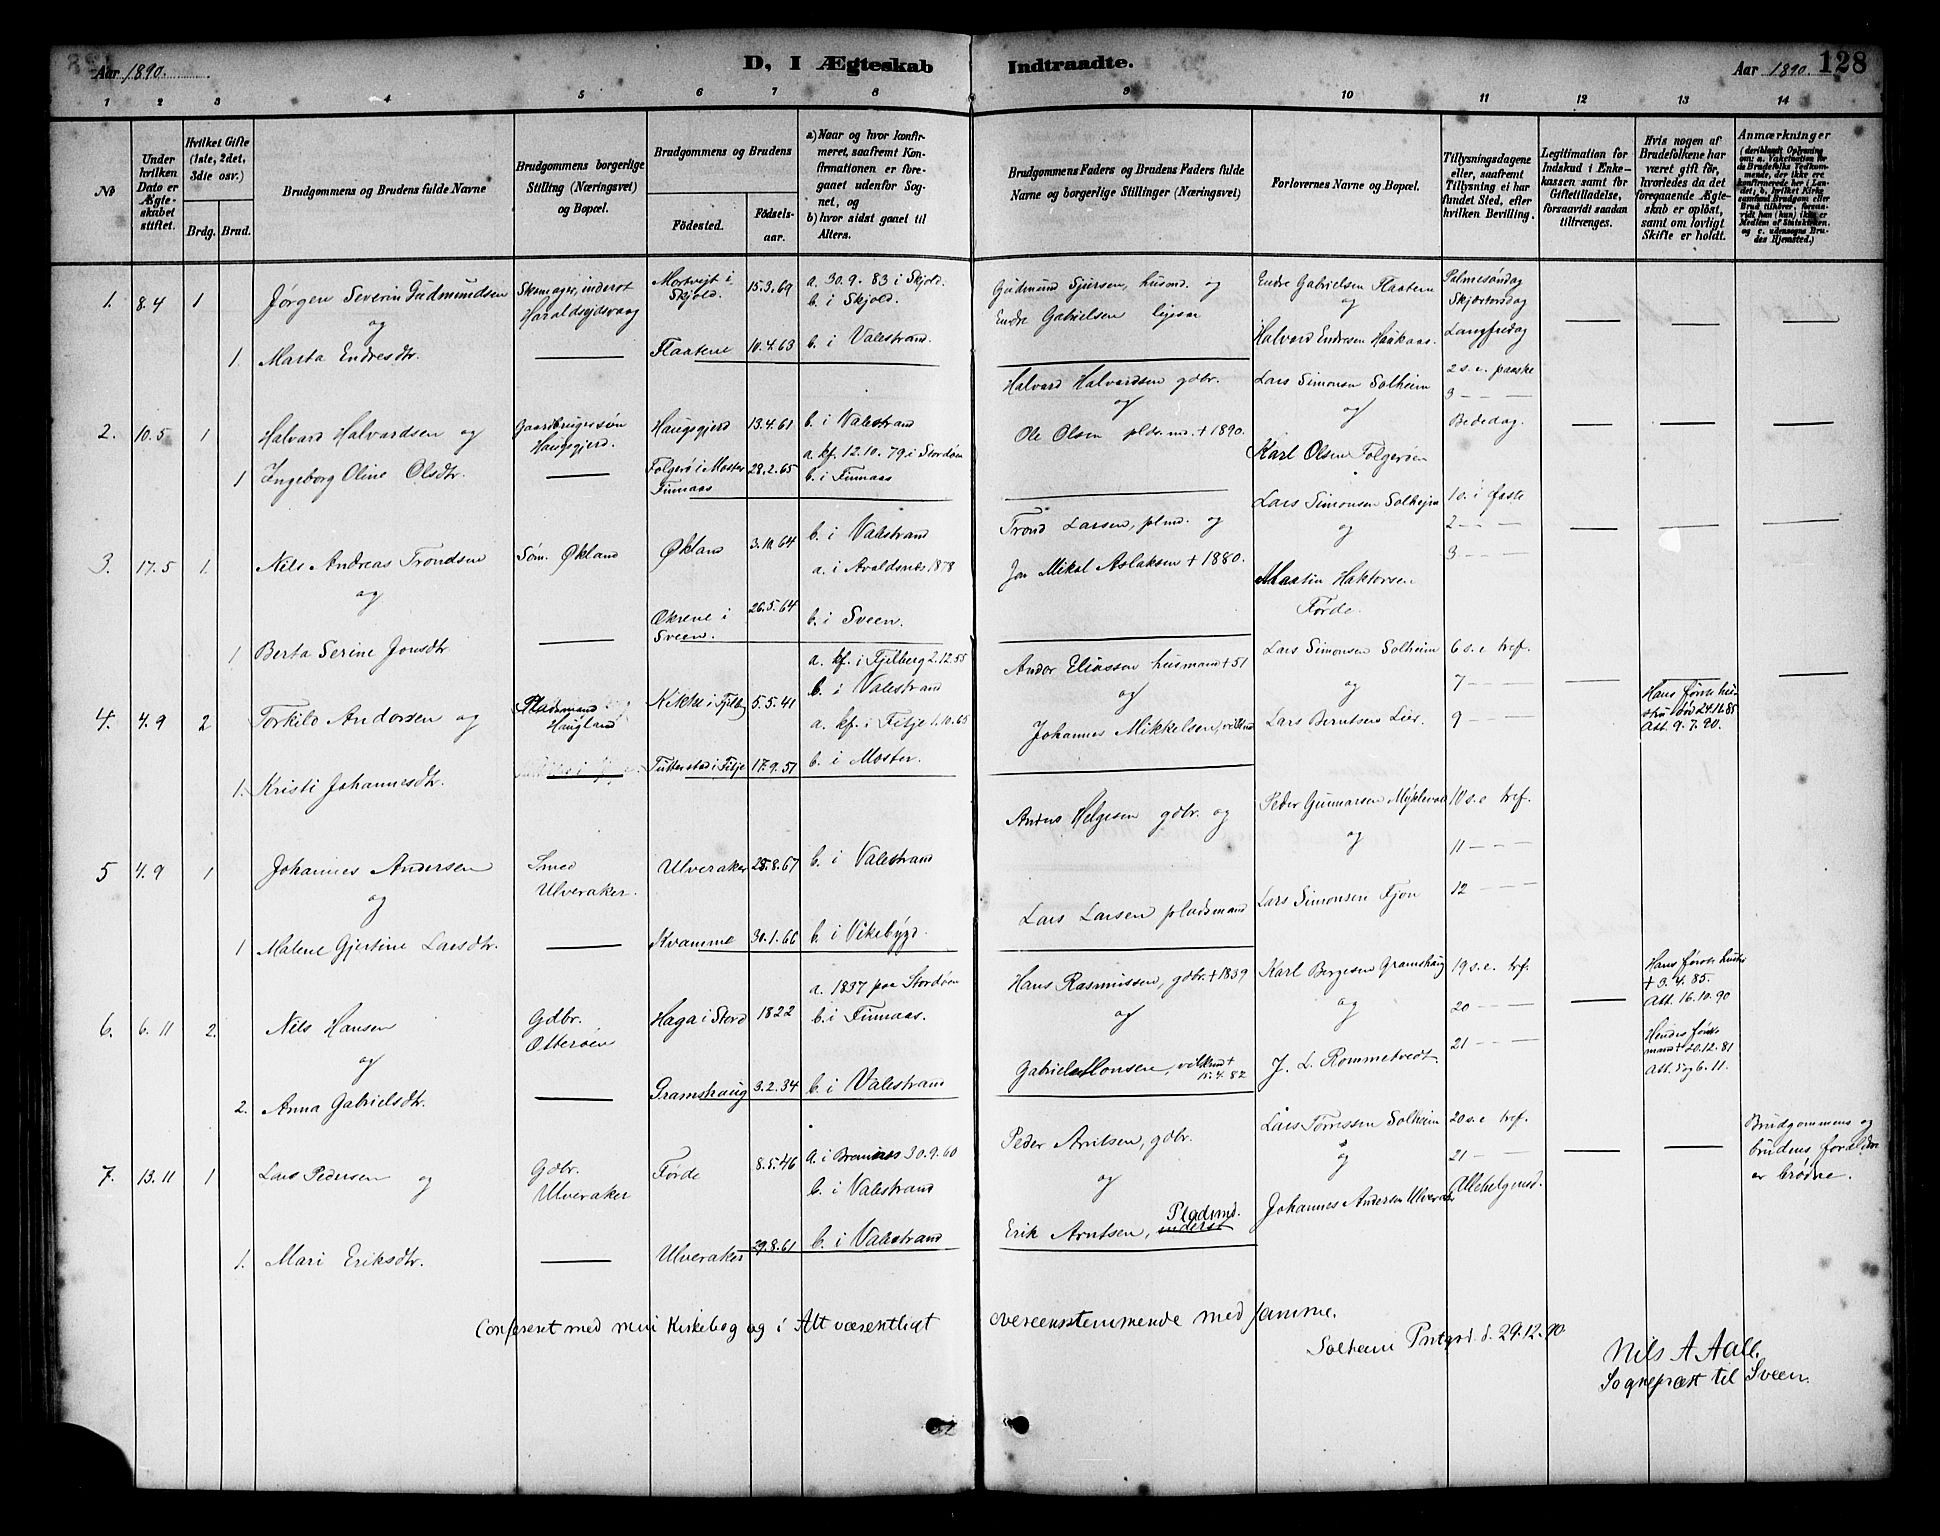 Aar 1890.
D, I Ægteskab Indtraadte.
Aar 1890. 128
1 2 3 4 5 6 7 8 9 10 11 12 13 14
No
Under hvilken Dato er Ægteskabet stiftet.
Hvilket Gifte (1ste, 2det, 3die osv.)
Brdg. Brud.
Brudgommens og Brudens fulde Navne
Brudgommens borgerlige Stilling (Næringsvei) og Bopæl.
Brudgommens og Brudens
Fødested.
Fødselsaar.
a) Naar og hvor konfirmeret, saafremt Konfirmationen er foregaaet udenfor Sognet, og
b) hvor sidst gaaet til Alters.
Brudgommens Faders og Brudens Faders fulde Navne og borgerlige Stillinger (Næringsvei)
Forlovernes Navne og Bopæl.
Tillysningsdagene eller, saafremt Tillysning ei har fundet Sted, efter hvilken Bevilling.
Legitimation for Indskud i Enkekassen samt for Giftetilladelse, forsaavidt saadan tiltrænges.
Hvis nogen af Brudefolkene har været gift før, hvorledes da det foregaaende Ægteskab er opløst, samt om lovligt Skifte er holdt.
Anmærkninger
(deriblandt Oplysning om: a. Vaccination for de Brudefolks Vedkommende, der ikke ere konfirmerede her i Landet; b. hvilket Kirkesamfund Brudgom eller Brud tilhører, forsaavidt han (hun) ikke er Medlem af Statskirken, og c. udensogns Brudes Hjemsted.)
1. 8.4 1 Jørgen Severin Gudmundsen Skomager, inderst Mortveit i 15.3.69 a. 30.9.83 i Skjold. Gudmund Sjursen, husmd. og Endre Gabrielsen Flaatene Palmesøndag
og Haraldseidsvaag Skjold. b. i Skjold. Endre Gabrielsen ligesaa og Skjærtorsdag
1 Marta Endresdtr. Flaatene 10.4.63 b. i Valestrand. Halvard Endresen Haukaas. Langfredag
2. 10.5 1 Halvard Halvardsen og Gaardbrugersøn Haugsgjerd 13.4.61 b. i Valestrand Halvard Halvardsen gdbr. Lars Simonsen Solheim 2 s.e. paaske
Haugsgjerd. og og 3 — — —
1 Ingeborg Oline Olsdtr. Folgerø i Moster 28.2.65 a. kf. 12.10.79 i Stordøen Ole Olsen pldsmd. + 1890. Karl Olsen Folgerøen Bededag.
Finnaas b. i Finnaas
3. 17.5 1. Nils Andreas Trondsen Søm. Økland Økland 3.10.64 b. i Valestrand Trond Larsen, plmd. og Lars Simonsen Solheim 1 s. i faste
og a. i Avaldsnæs 1878 Jon Mikal Aslaksen + 1880. og 2 — — —
1 Berta Serine Jonsdtr. Økrene i Sveen. 26.5.64 b. i Sveen. Martin Haktorsen Førde. 3 — — —
4. 4.9 2 Torkild Andorsen og Pladsmand Haugland 5.5.41 a. kf. i Fjelberg 2.12.55 Andor Eliassen husmand + 51 Lars Simonsen Solheim 6 s.e. tref.
b. i Valestrand og og 7 — — —
1. Kristi Johannesdtr. 17.9.51 a. kf. i Fitje 1.10.65 Johannes Mikkelsen, Lars Berntsen Lier. 9 — — —
b. i Moster.
Hans første hustru død 24.11.85
Att. 9.7.90.
5 4.9 1 Johannes Andersen Smed Ulveraker 25.8.67 b. i Valestrand Anders Helgesen gdbr. og Peder Gunnarsen 10 s.e. tref.
og Ulveraker. og 11 — — —
1 Malene Gjertine Larsdtr. Kvamme 30.1.66 b. i Vikebygd. Lars Larsen pladsmand Lars Simonsen Fjon 12 — — —
6. 6.11 2. Nils Hansen Gdbr. Haga i Stord 1822 a. 1837 paa Stordøen Hans Rasmussen, gdbr. + 1839 Karl Børgesen Gramshaug 19 s.e. tref.
og Otterøen b. i Finnaas. og og 20 — — —
2. Anna Gabrielsdtr. Gramshaug 3.2.34 b. i Valestrand Gabriel Monsen, + 15.4.82 J. L. Rommetvedt. 21 — — —
Hans første hustru + 3.4.85. Att. 16.10.90
Hendes første mand + 20.12.81 Att. 5 og 6.11.
7. 13.11 1 Lars Pedersen og Gdbr. Førde 8.5.46 a. i Bremnes 30.9.60 Peder Arntsen, gdbr. Lars Tørressen Solheim 20 s.e. tref.
Ulveraker b. i Valestrand og og 21 — — —
1. Mari Eriksdtr. Ulveraker 29.8.61 b. i Valestrand Erik Arntsen, inderst Pladsmd. Johannes Andersen Ulveraker Allehelgensd.
Brudgommens og brudens forældre er brødre.
Confereret med min Kirkebog og i Alt væsentligt overeensstemmende med samme.
Solheim Prstgrd. d. 29.12.90.
Nils A Aall.
Sognepræst til Sveen.